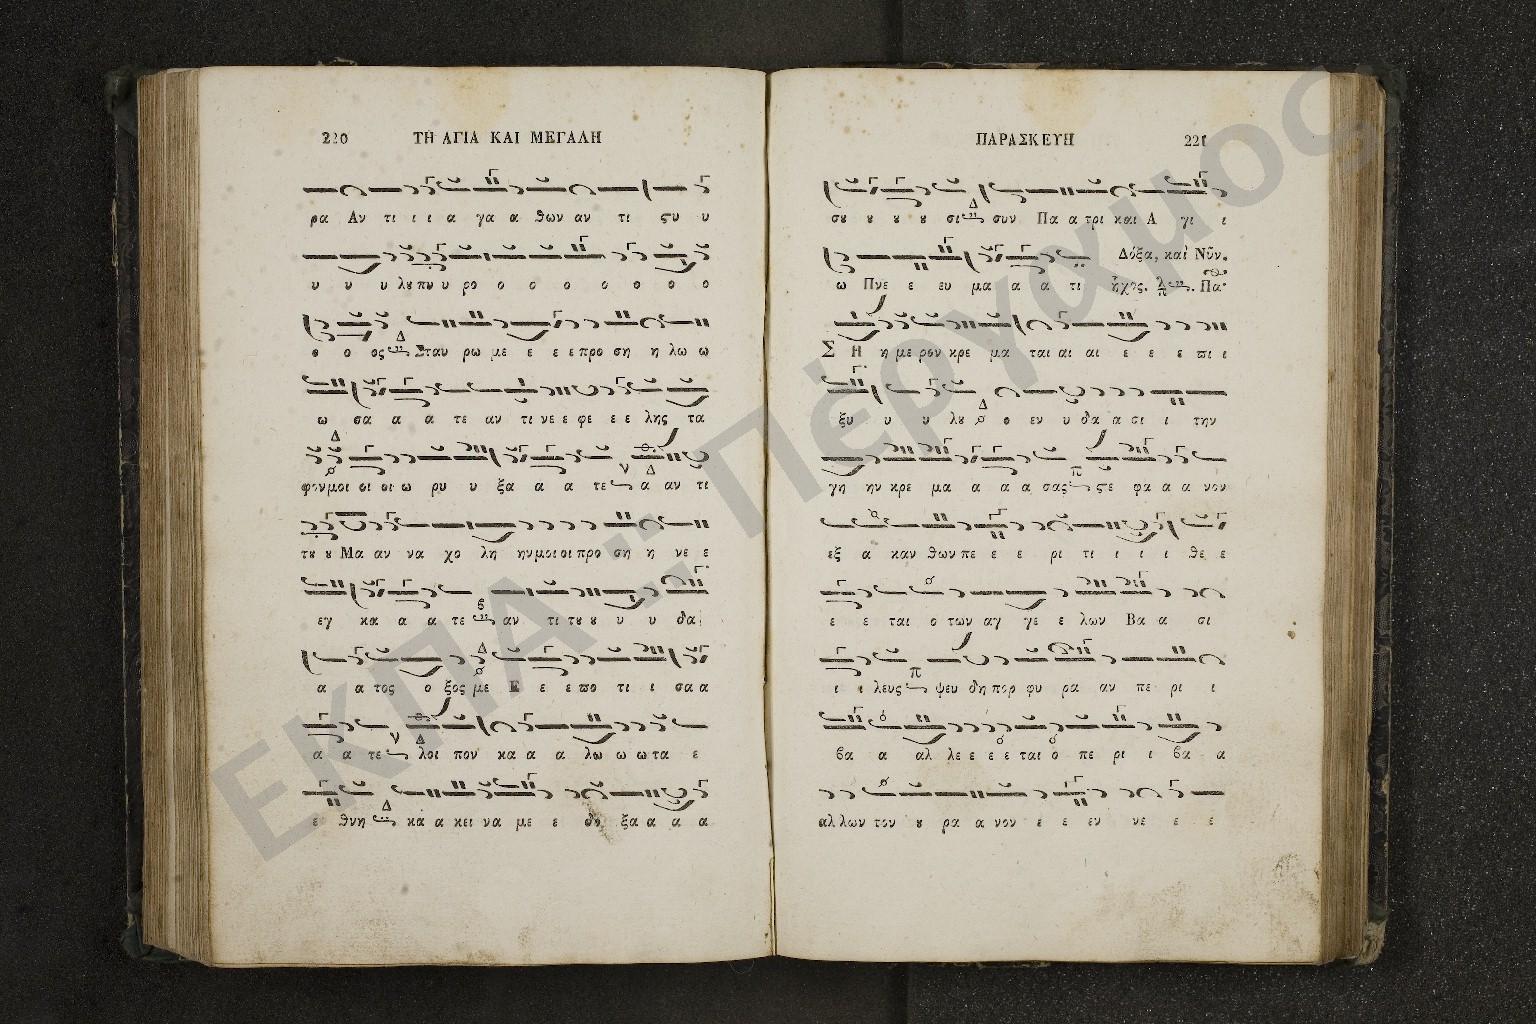 220 ΤΗ ΑΓΙΑ ΚΑΙ ΜΕΓΑΛΗ
ρα Αν τι ι ι α γα α θων αν τι ϛυ υ
υ υ υ λȣ πυ υ ρο ο ο ο ο ο ο ο
ο ο ος Σταυ ρω με ε ε ε προ ση η λω ω
ω σα α α α τε αν τι νε ε φε ε ε λης τα
φον μοι οι οι ω ρυ υ ξα α α α τε α αν τι
τȣ ȣ Μα αν να χο λη ην μοι οι προ ση η νε ε
εγ κα α α τε αν τι τȣ ȣ υ υ δα
α α τος ο ξος με Ε ε ε πο τι ι σα α
α α τε λοι πον κα α α λω ω ω τα ε
ε θνη κα α κει να με ε δο ξα α α α
ΠΑΡΑΣΚΕΥΗ 221
σȣ ȣ ȣ ȣ σι συν Πα α τρι και Α γι ι
ω Πνε ε ευ μα α α τι ἦχος. Πα
Δόξα, καὶ Νῦν.
Σ Η η με ρον κρε μα ται αι αι ε ε ε πι ι
ξυ υ υ λȣ ο ο εν υ δα α σι ι την
γη ην κρε μα α α α σας ϛε φα α α νον
εξ α καν θων πε ε ε ρι τι ι ι ι θε ε
ε ε ται ο των αγ γε ε λων Βα α σι
ι ι λευς ψευ δη πορ φυ ρα αν πε ρι ι
βα α αλ λε ε ε ε ται ο πε ρι ι βα α
αλ λων τον ȣ ρα α νον ε ε εν νε ε ε
ΕΚΠΑ :: Πέργαμος